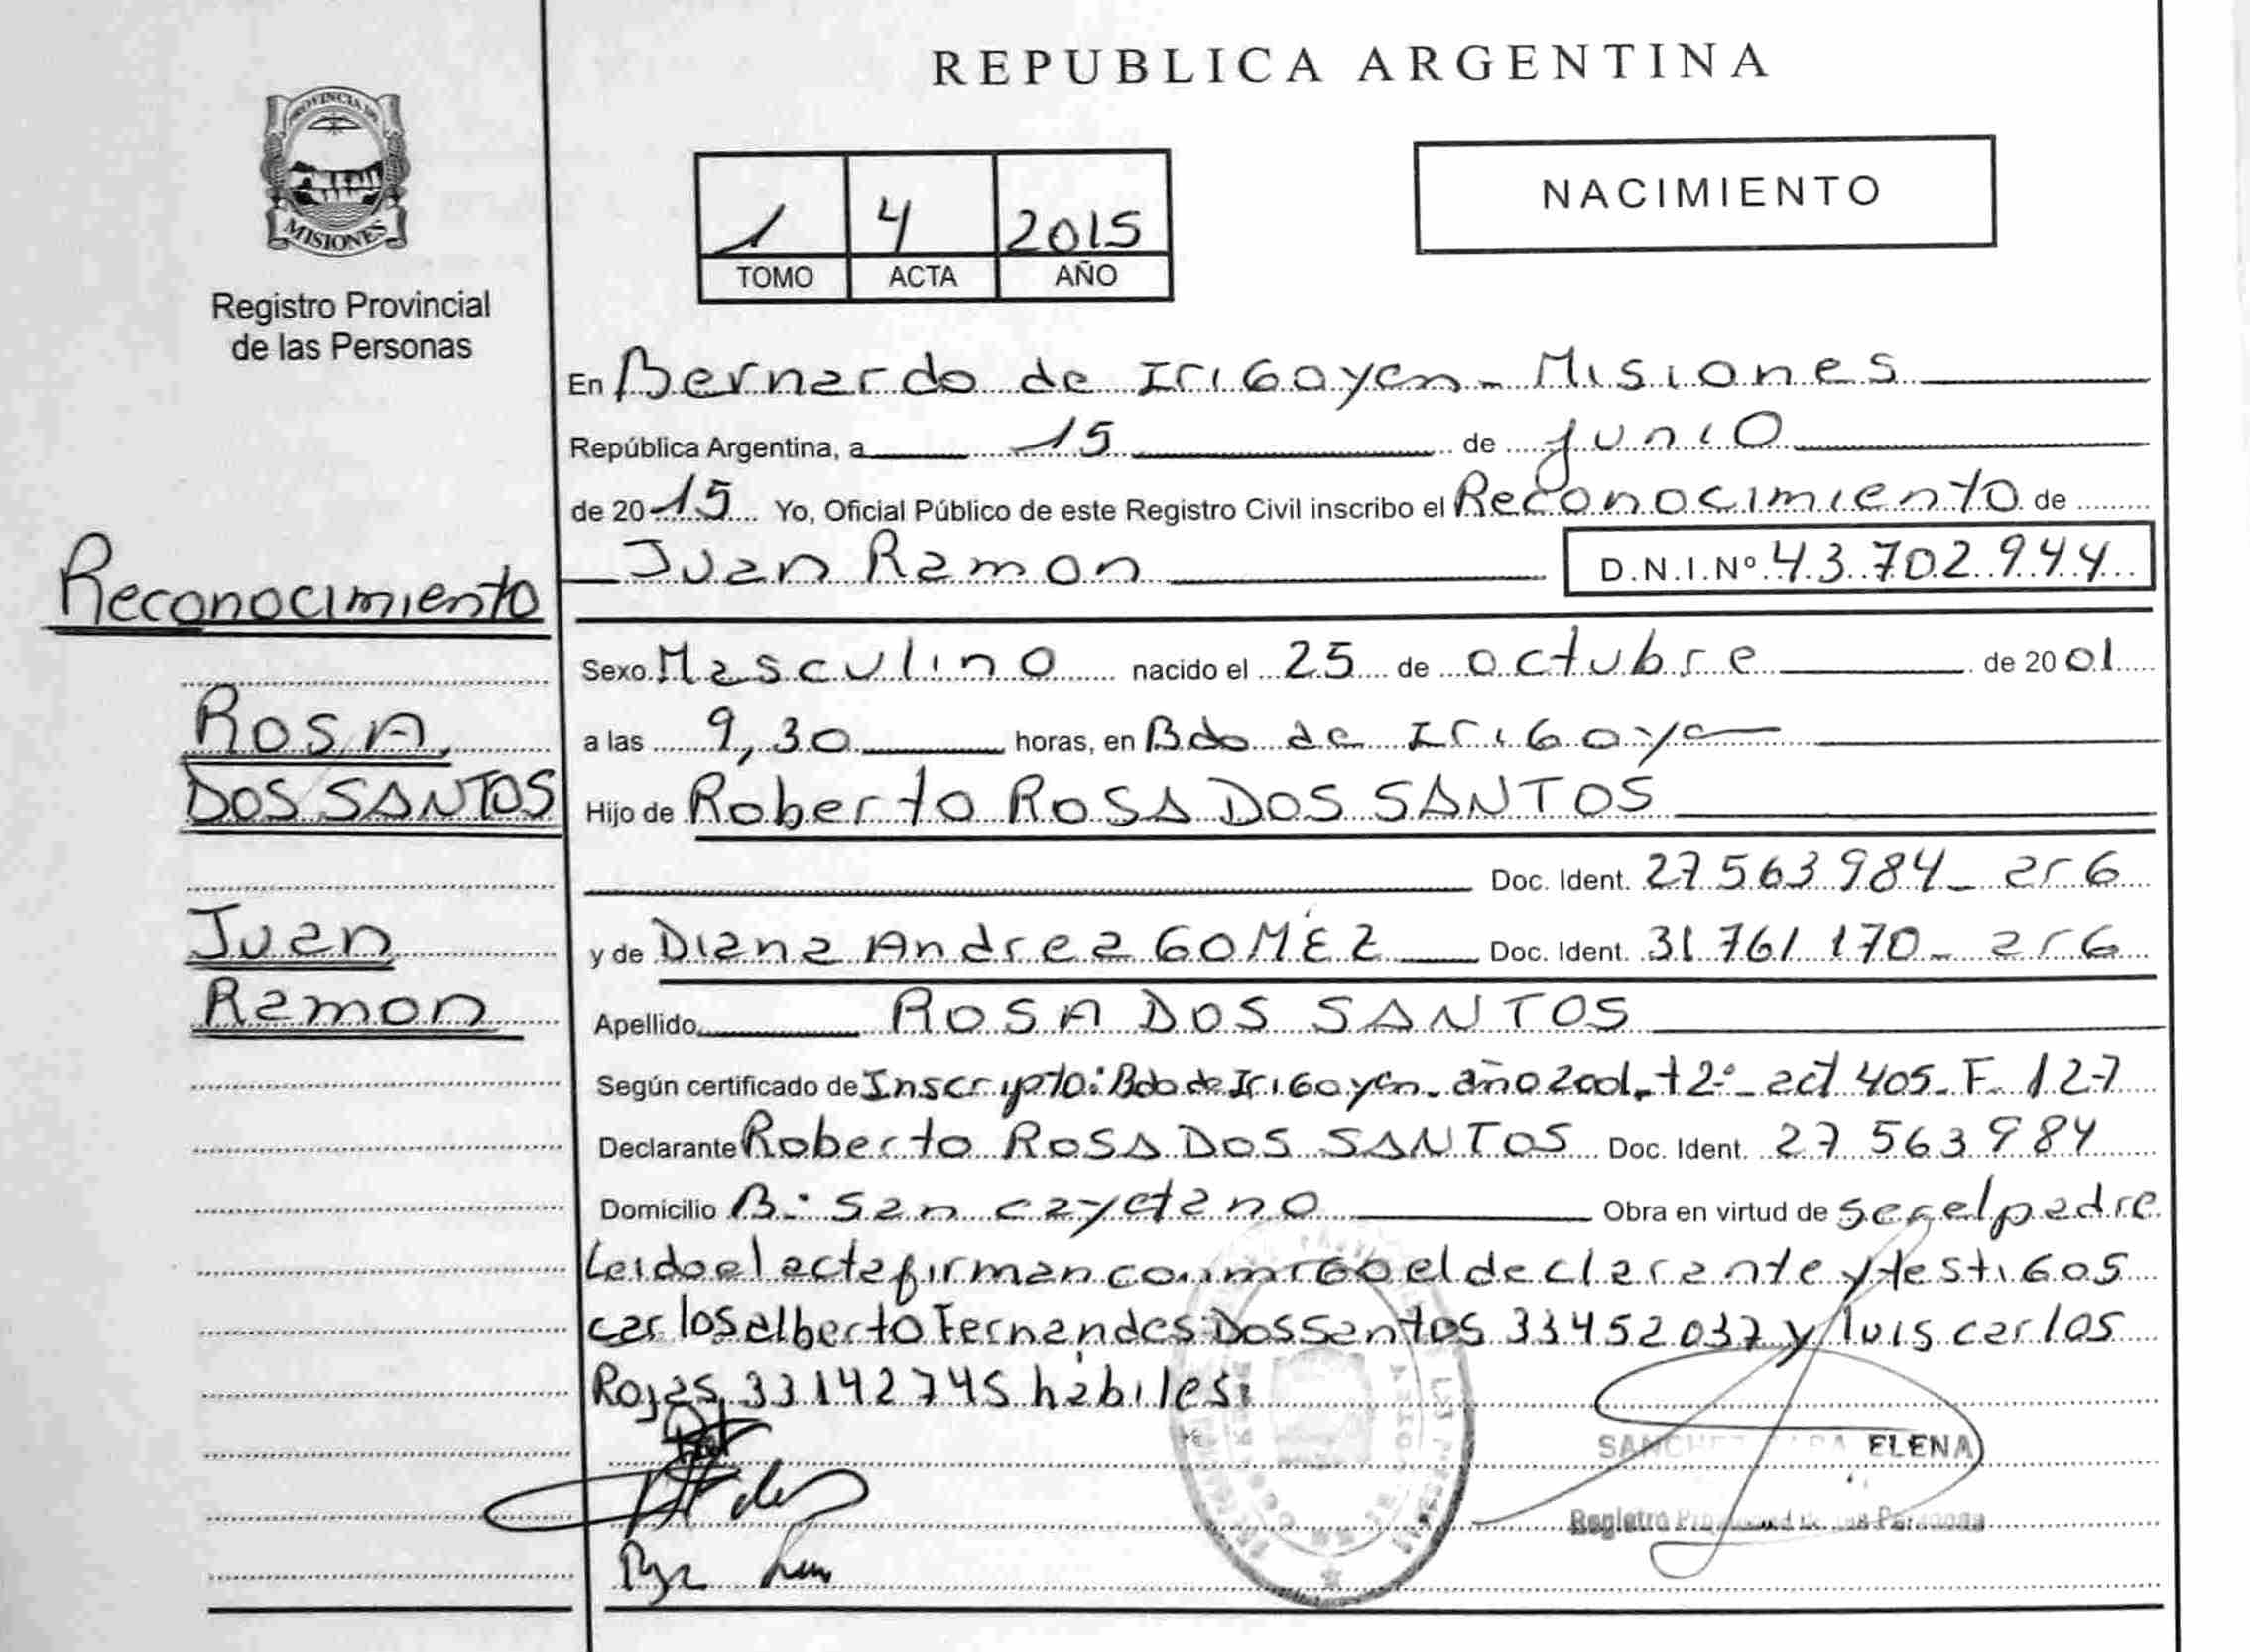 REPUBLICA ARGENTINA
PROVINCIA DE
MISIONES
Registro Provincial
de las Personas
1 4 2015
TOMO ACTA AÑO
NACIMIENTO
En Bernardo de Irigoyen - Misiones
República Argentina, a 15 de junio
de 2015 Yo, Oficial Público de este Registro Civil inscribo el Reconocimiento de
Juan Ramon D.N.I.Nº 43.702.944
Reconocimiento
Sexo Masculino nacido el 25 de octubre de 2001
a las 9,30 horas, en Bdo de Irigoyen
Rosa
DOS SANTOS
Hijo de Roberto ROSA DOS SANTOS
Doc. Ident. 27563984 - arg
Juan
Ramon
y de Diana Andrea GOMEZ Doc. Ident. 31761170 - arg
Apellido ROSA DOS SANTOS
Según certificado de Inscripto: Bdo de Irigoyen - año 2001 - t 2º - act 405 - F. 127
Declarante Roberto ROSA DOS SANTOS Doc. Ident. 27563984
Domicilio B: San cayetano Obra en virtud de ser el padre
Leido el acta firman conmigo el declarante y testigos
carlos alberto Fernandes Dos Santos 33452037 y luis carlos
Rojas 33142745 habiles
SANCHEZ ELENA
Registro Provincial de las Personas